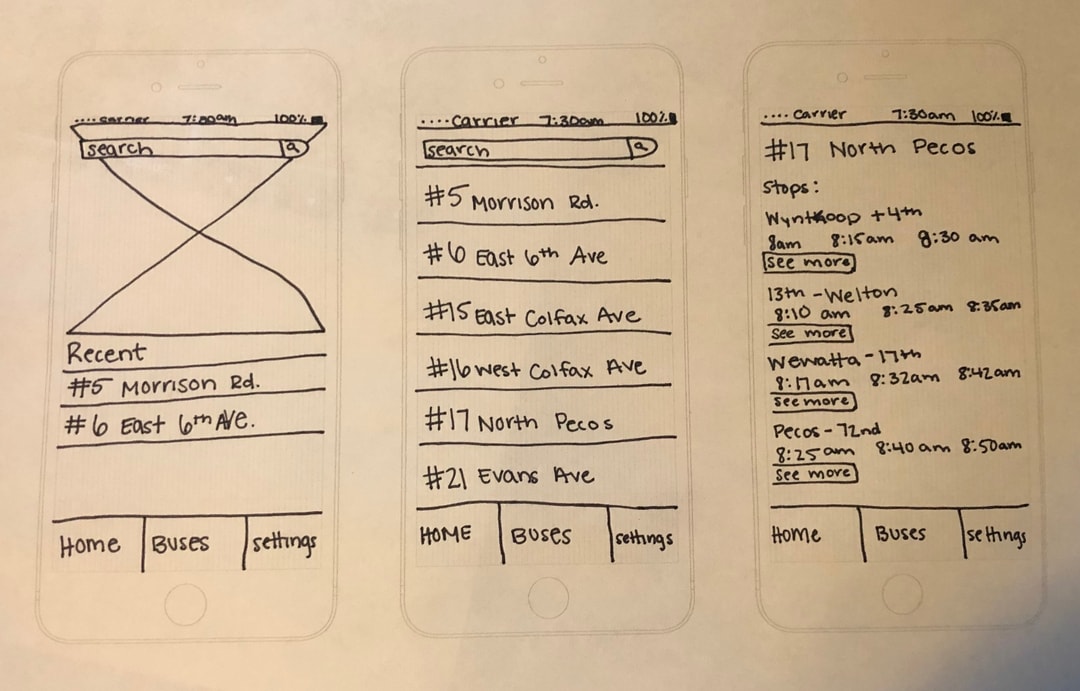 .... carrier 7:30am 100%
search
Recent
#5 Morrison Rd.
#6 East 6th Ave.
Home Buses settings
.... Carrier 7:30am 100%
search
#5 Morrison Rd.
#6 East 6th Ave
#15 East Colfax Ave
#16 West Colfax Ave
#17 North Pecos
#21 Evans Ave
HOME Buses settings
.... Carrier 7:30am 100%
#17 North Pecos
Stops:
Wynkoop + 4th
8am 8:15am 8:30 am
see more
13th - Welton
8:10 am 8:25am 8:35am
see more
Wewatta - 17th
8:17am 8:32am 8:42am
see more
Pecos - 72nd
8:25am 8:40am 8:50am
see more
Home Buses settings